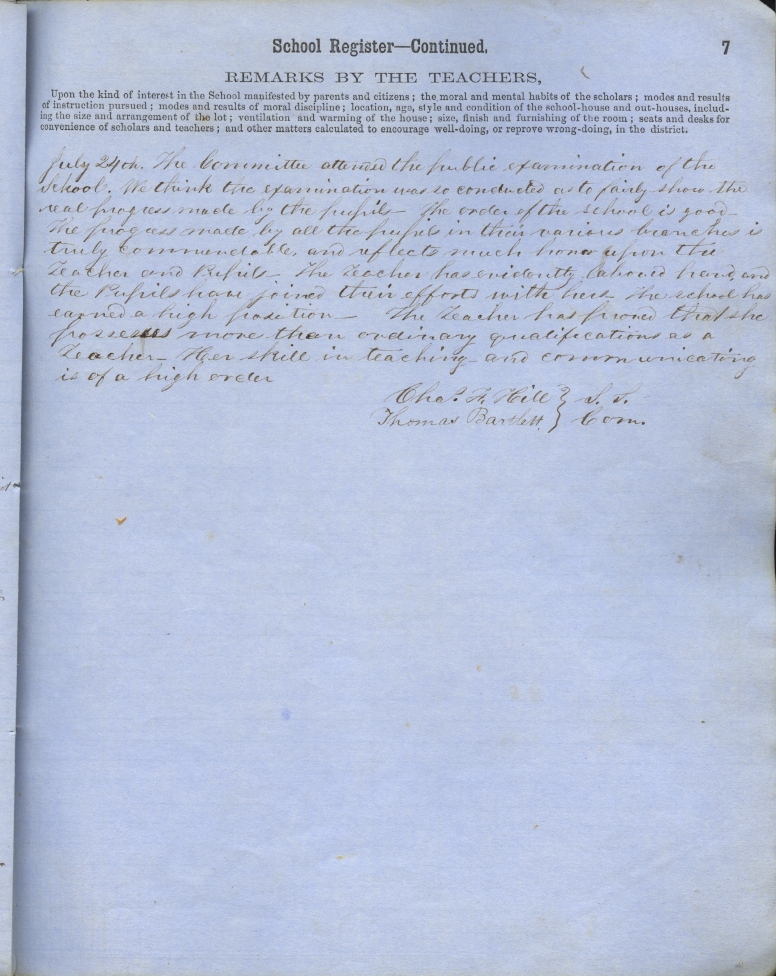 School Register—Continued.
7
REMARKS BY THE TEACHERS,
Upon the kind of interest in the School manifested by parents and citizens; the moral and mental habits of the scholars; modes and results
of instruction pursued; modes and results of moral discipline; location, age, style and condition of the school-house and out-houses, includ-
ing the size and arrangement of the lot; ventilation and warming of the house; size, finish and furnishing of the room; seats and desks for
convenience of scholars and teachers; and other matters calculated to encourage well-doing, or reprove wrong-doing, in the district.
July 24th. The Committee attended the public examination of the
School. We think the examination was so conducted as to fairly show the
real progress made by the pupils— The order of the school is good—
The progress made by all the pupils in their various branches is
truly commendable, and reflects much honor upon the
Teacher and Pupils— The Teacher has evidently labored hard, and
the Pupils have joined their efforts with hers. The school has
earned a high position— The Teacher has proved that she
possesses more than ordinary qualifications as a
Teacher— Her skill in teaching and communicating
is of a high order
Chas. F. Hill } S. S.
Thomas Bartlett } Com.